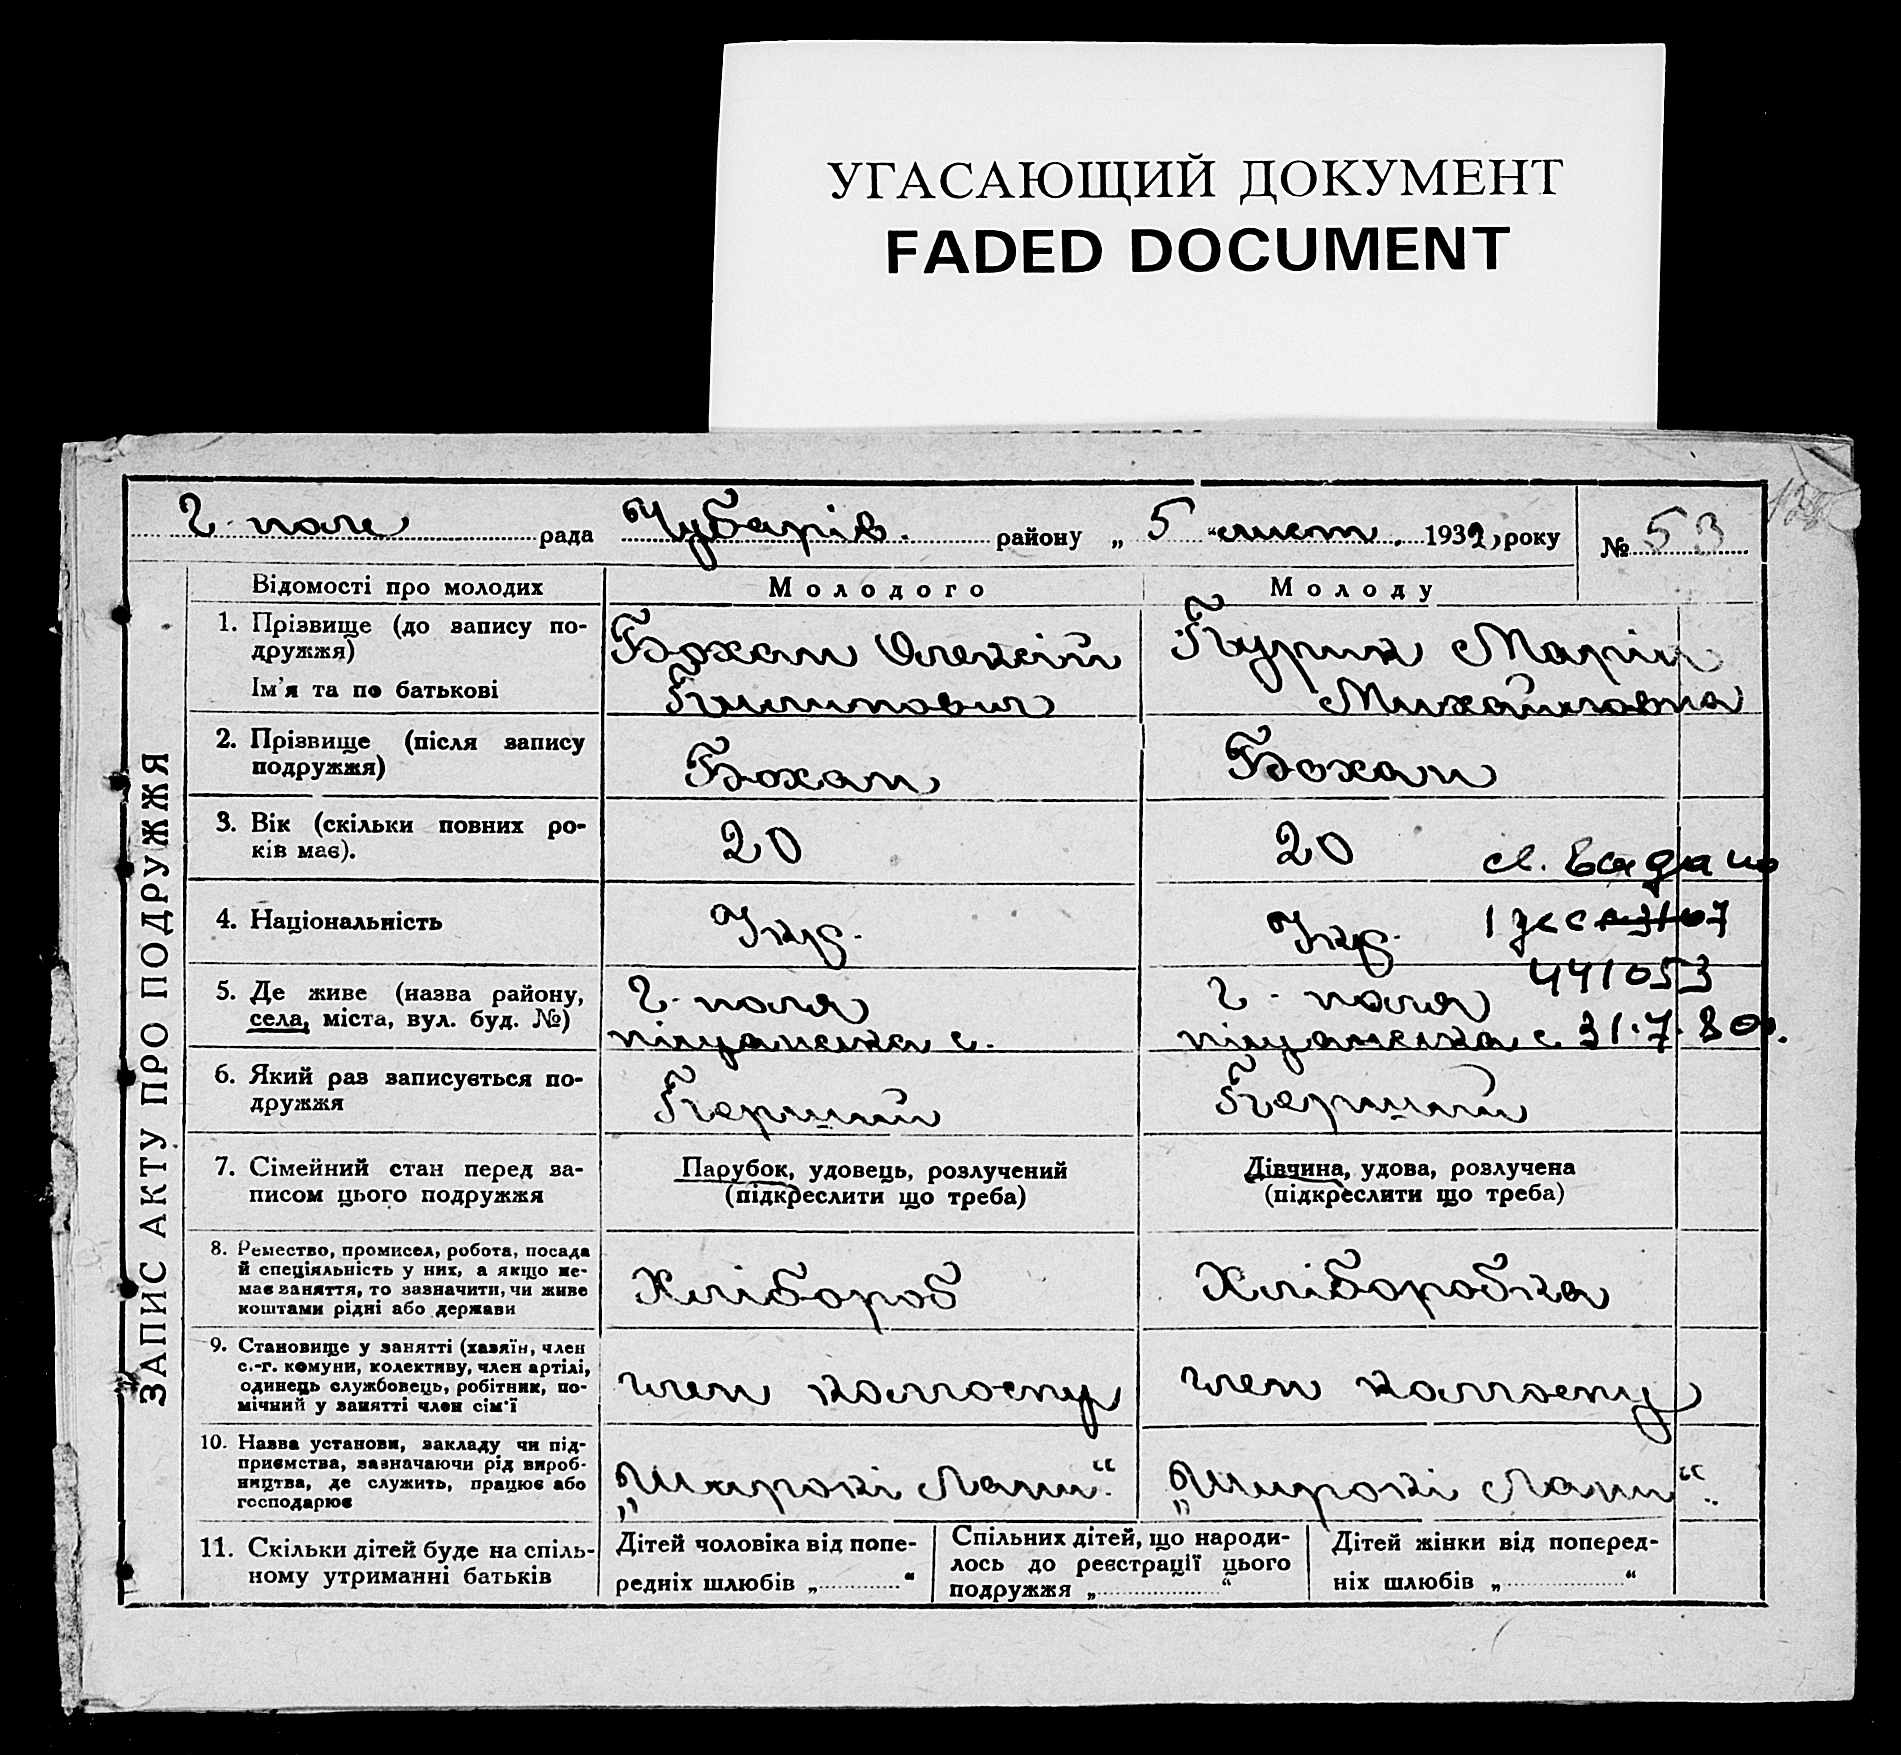 УГАСАЮЩИЙ ДОКУМЕНТ
FADED DOCUMENT
Г. поле рада Чубарів. району „5“ лист. 1932, року № 53
ЗАПИС АКТУ ПРО ПОДРУЖЖЯ
Відомості про молодих Молодого Молоду
1. Прізвище (до запису по-
дружжя)
Ім'я та по батькові
Бохан Олексій
Пилипович
Пурик Марія
Михайловна
2. Прізвище (після запису
подружжя)
Бохан
Бохан
3. Вік (скільки повних ро-
ків має).
20
20
4. Національність
Укр.
Укр.
441053
31.7.80.
5. Де живе (назва району,
села, міста, вул. буд. №)
Г. поля
с.
Г. поля
с.
6. Який раз записується по-
дружжя
Перший
Перший
7. Сімейний стан перед за-
писом цього подружжя
Парубок, удовець, розлучений
(підкреслити що треба)
Дівчина, удова, розлучена
(підкреслити що треба)
8. Ремество, промисел, робота, посада
й спеціяльність у них, а якщо не-
має заняття, то зазначити, чи живе
коштами рідні або держави
Хлібороб
Хліборобка
9. Становище у занятті (хазяїн, член
с.-г. комуни, колективу, член артілі,
одинець службовець, робітник, по-
мічний у занятті член сім'ї
член колгоспу
член колгоспу
10. Назва установи, закладу чи під-
приємства, зазначаючи рід вироб-
ництва, де служить, працює або
господарює
„Широкі Лани“.
„Широкі Лани“.
11. Скільки дітей буде на спіль-
ному утриманні батьків
Дітей чоловіка від попе-
редніх шлюбів „ “
Спільних дітей, що народи-
лось до реєстрації цього
подружжя „ “
Дітей жінки від поперед-
ніх шлюбів „ “